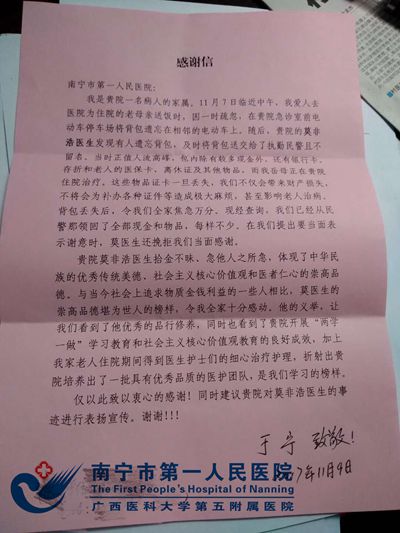 感谢信
南宁市第一人民医院：
我是贵院一名病人的家属。11月7日临近中午，我爱人去
医院为住院的老母亲送饭时，因一时疏忽，在贵院急诊室前电
动车停车场将背包遗忘在相邻的电动车上。随后，贵院的莫非
浩医生发现有人遗忘背包，及时将背包送交给了执勤民警且不
留名。当时正值人流高峰，包内除有较多现金外，还有银行卡、
存折和老人的医保卡、离休证及其他物品，而我岳母正在贵院
住院治疗。这些物品证卡一旦丢失，我们不仅会带来财产损失，
不将会为补办各种证件等造成极大麻烦，甚至影响老人治病。
背包丢失后，令我们全家焦急万分。现经查询，我们已经从民
警那领回了全部现金和物品，每样不少。在我们提出要当面表
示谢意时，莫医生还挽拒我们当面感谢。
贵院莫非浩医生拾金不昧，急他人之所急，体现了中华民
族的优秀传统美德、社会主义核心价值观和医者仁心的崇高品
德。与当今社会上追求物质金钱利益的一些人相比，莫医生的
崇高品德堪为世人的榜样，令我全家十分感动。他的义举，让
我们看到了他优秀的品行修养，同时也看到了贵院开展“两学
一做”学习教育和社会主义核心价值观教育的良好成效，加上
我家老人住院期间得到医生护士们的细心治疗护理，折射出贵
院培养出了一批具有优秀品质的医护团队，是我们学习的榜样。
仅以此致以衷心的感谢！同时建议贵院对莫非浩医生的事
迹进行表扬宣传。谢谢!!!
于宁 致敬！
7年11月9日
南宁市第一人民医院
The First People's Hospital of Nanning
广西医科大学第五附属医院